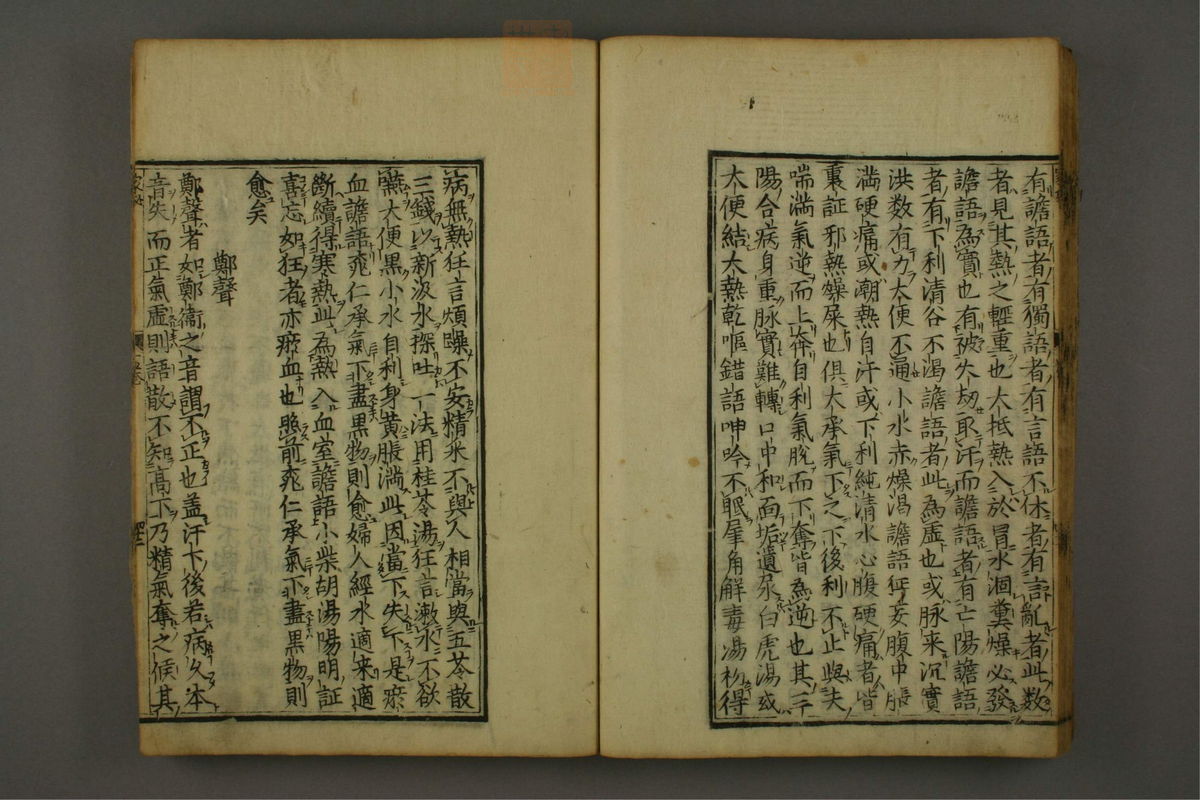 有譫語者有獨語者有言語不休者有言亂者此数
者見其熱之輕重也大抵熱入於胃水涸糞燥必發
譫語為實也有被火刼取汗而譫語者有亡陽譫語
者有下利清谷不渴譫語者此為虚也或脉来沉實
洪数有力大便不通小水赤燥渴譫語狂妄腹中脹
満硬痛或潮熱自汗或下利純清水心腹硬痛者皆
裏証邪熱燥屎也俱大承氣下之下後利不止與夫
喘満氣逆而上奔自利氣脫而下奪皆為逆也其三
陽合病身重脉實難轉口中和面垢遺尿白虎湯或
大便結大熱乾嘔錯語呻吟不眠犀角解毒湯初得
病無熱狂言煩躁不安精采不與人相當與五苓散
三錢以新汲水探吐一法用桂苓湯狂言漱水不欲
嚥大便黒小水自利身黄脹満此因當下失下是瘀
血譫語桃仁承氣下盡黒物則愈婦人經水適来適
斷續得寒熱此為熱入血室譫語小柴胡湯陽明証
喜忘如狂者亦瘀血也照前桃仁承氣下盡黒物則
愈矣
鄭聲
鄭聲者如鄭衞之音謂不正也盖汗下後若病久本
音失而正氣虚則語散不知高下乃精氣奪之候其